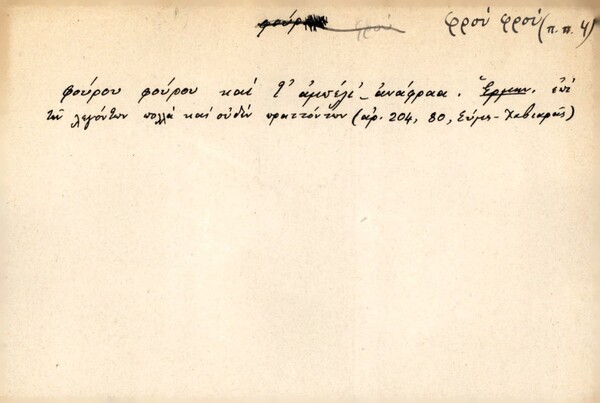 φρού φρού (π.π. 4)
φούρου φούρου καί τ' ἀμπέλι ἀνάφραα. Ἑρμην. ἐπί
τῶν λεγόντων πολλά καί οὐδέν πραττόντων (αρ. 204, 80, Σύμη - Χαβιαρᾶς)